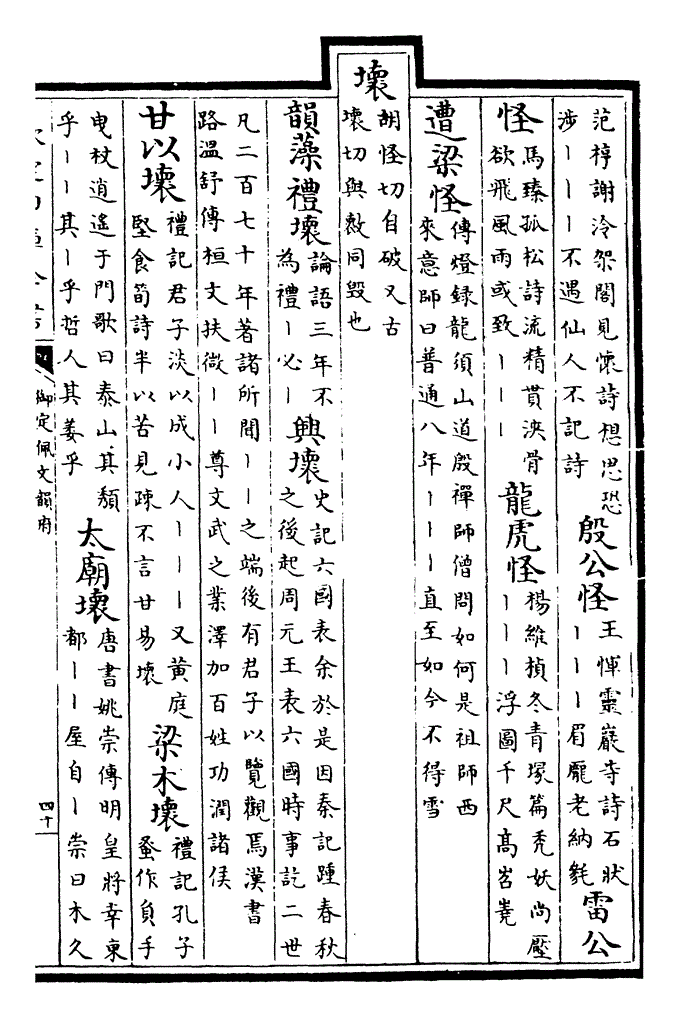 范梈謝冷架閣見懷詩想思恐
涉丨丨丨不遇仙人不記詩
殷公怪
王惲靈巖寺詩石狀
丨丨丨眉龎老納毿
雷公
怪
馬臻孤松詩流精貫泱骨
欲飛風雨或致丨丨丨
龍虎怪
楊維楨冬青塚篇禿妖尚壓
丨丨丨浮圖千尺髙岧嶤
遭梁怪
傳燈録龍須山道殷禪師僧問如何是祖師西
來意師曰普通八年丨丨丨直至如今不得雪
壞
胡怪切自破又古
壞切與敷同毀也
韻藻禮壞
論語三年不
為禮丨必丨
興壞
史記六國表余於是因秦記踵春秋
之後起周元王表六國時事訖二世
凡二百七十年著諸所聞丨丨之端後有君子以覽觀焉漢書
路溫舒傳桓文扶微丨丨尊文武之業澤加百姓功潤諸侯
甘以壞
禮記君子淡以成小人丨丨丨又黄庭
堅食筍詩半以苦見疎不言甘易壞
梁木壞
禮記孔子
蚤作負手
曳杖逍遙于門歌曰泰山其頹
乎丨丨其丨乎哲人其萎乎
太廟壞
唐書姚崇傳明皇將幸東
都丨丨屋自丨崇曰木久
御定佩文韻府
四十